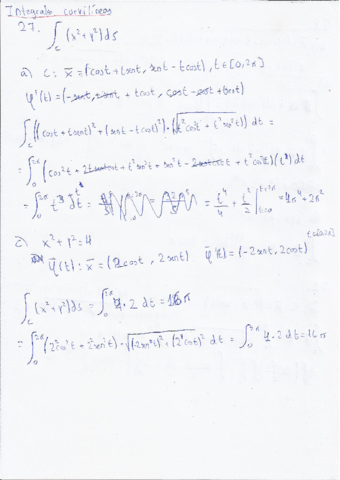 Integrals curvilíneos
27. ∫_C (x²+y²) ds
a) C: x̄ = (cost + t sent, sent - t cost), t∈[0,2π]
φ'(t) = (-sent + sent + t cost, cost - cost + t sent)
∫_C ((cost + t sent)² + (sent - t cost)²)·(√(t²cos²t + t²sen²t)) dt =
= ∫₀^2π (cos²t + 2t sent cost + t²sen²t + sen²t - 2t sent cost + t²cos²t)(t) dt
= ∫₀^2π t³ + t dt = = t⁴/4 + t²/2 |_{t=0}^{t=2π} = 4π⁴ + 2π²
c) x² + y² = 4
t∈[0,2π]
φ̄(t): x̄ = (2cost, 2sent) φ̄'(t) = (-2sent, 2cost)
∫_C (x²+y²) ds = ∫₀^2π 4·2 dt = 16π
= ∫₀^2π (2²cos²t + 2²sen²t)·√((-2sent)² + (2cost)²) dt = ∫₀^2π 4·2 dt = 16π